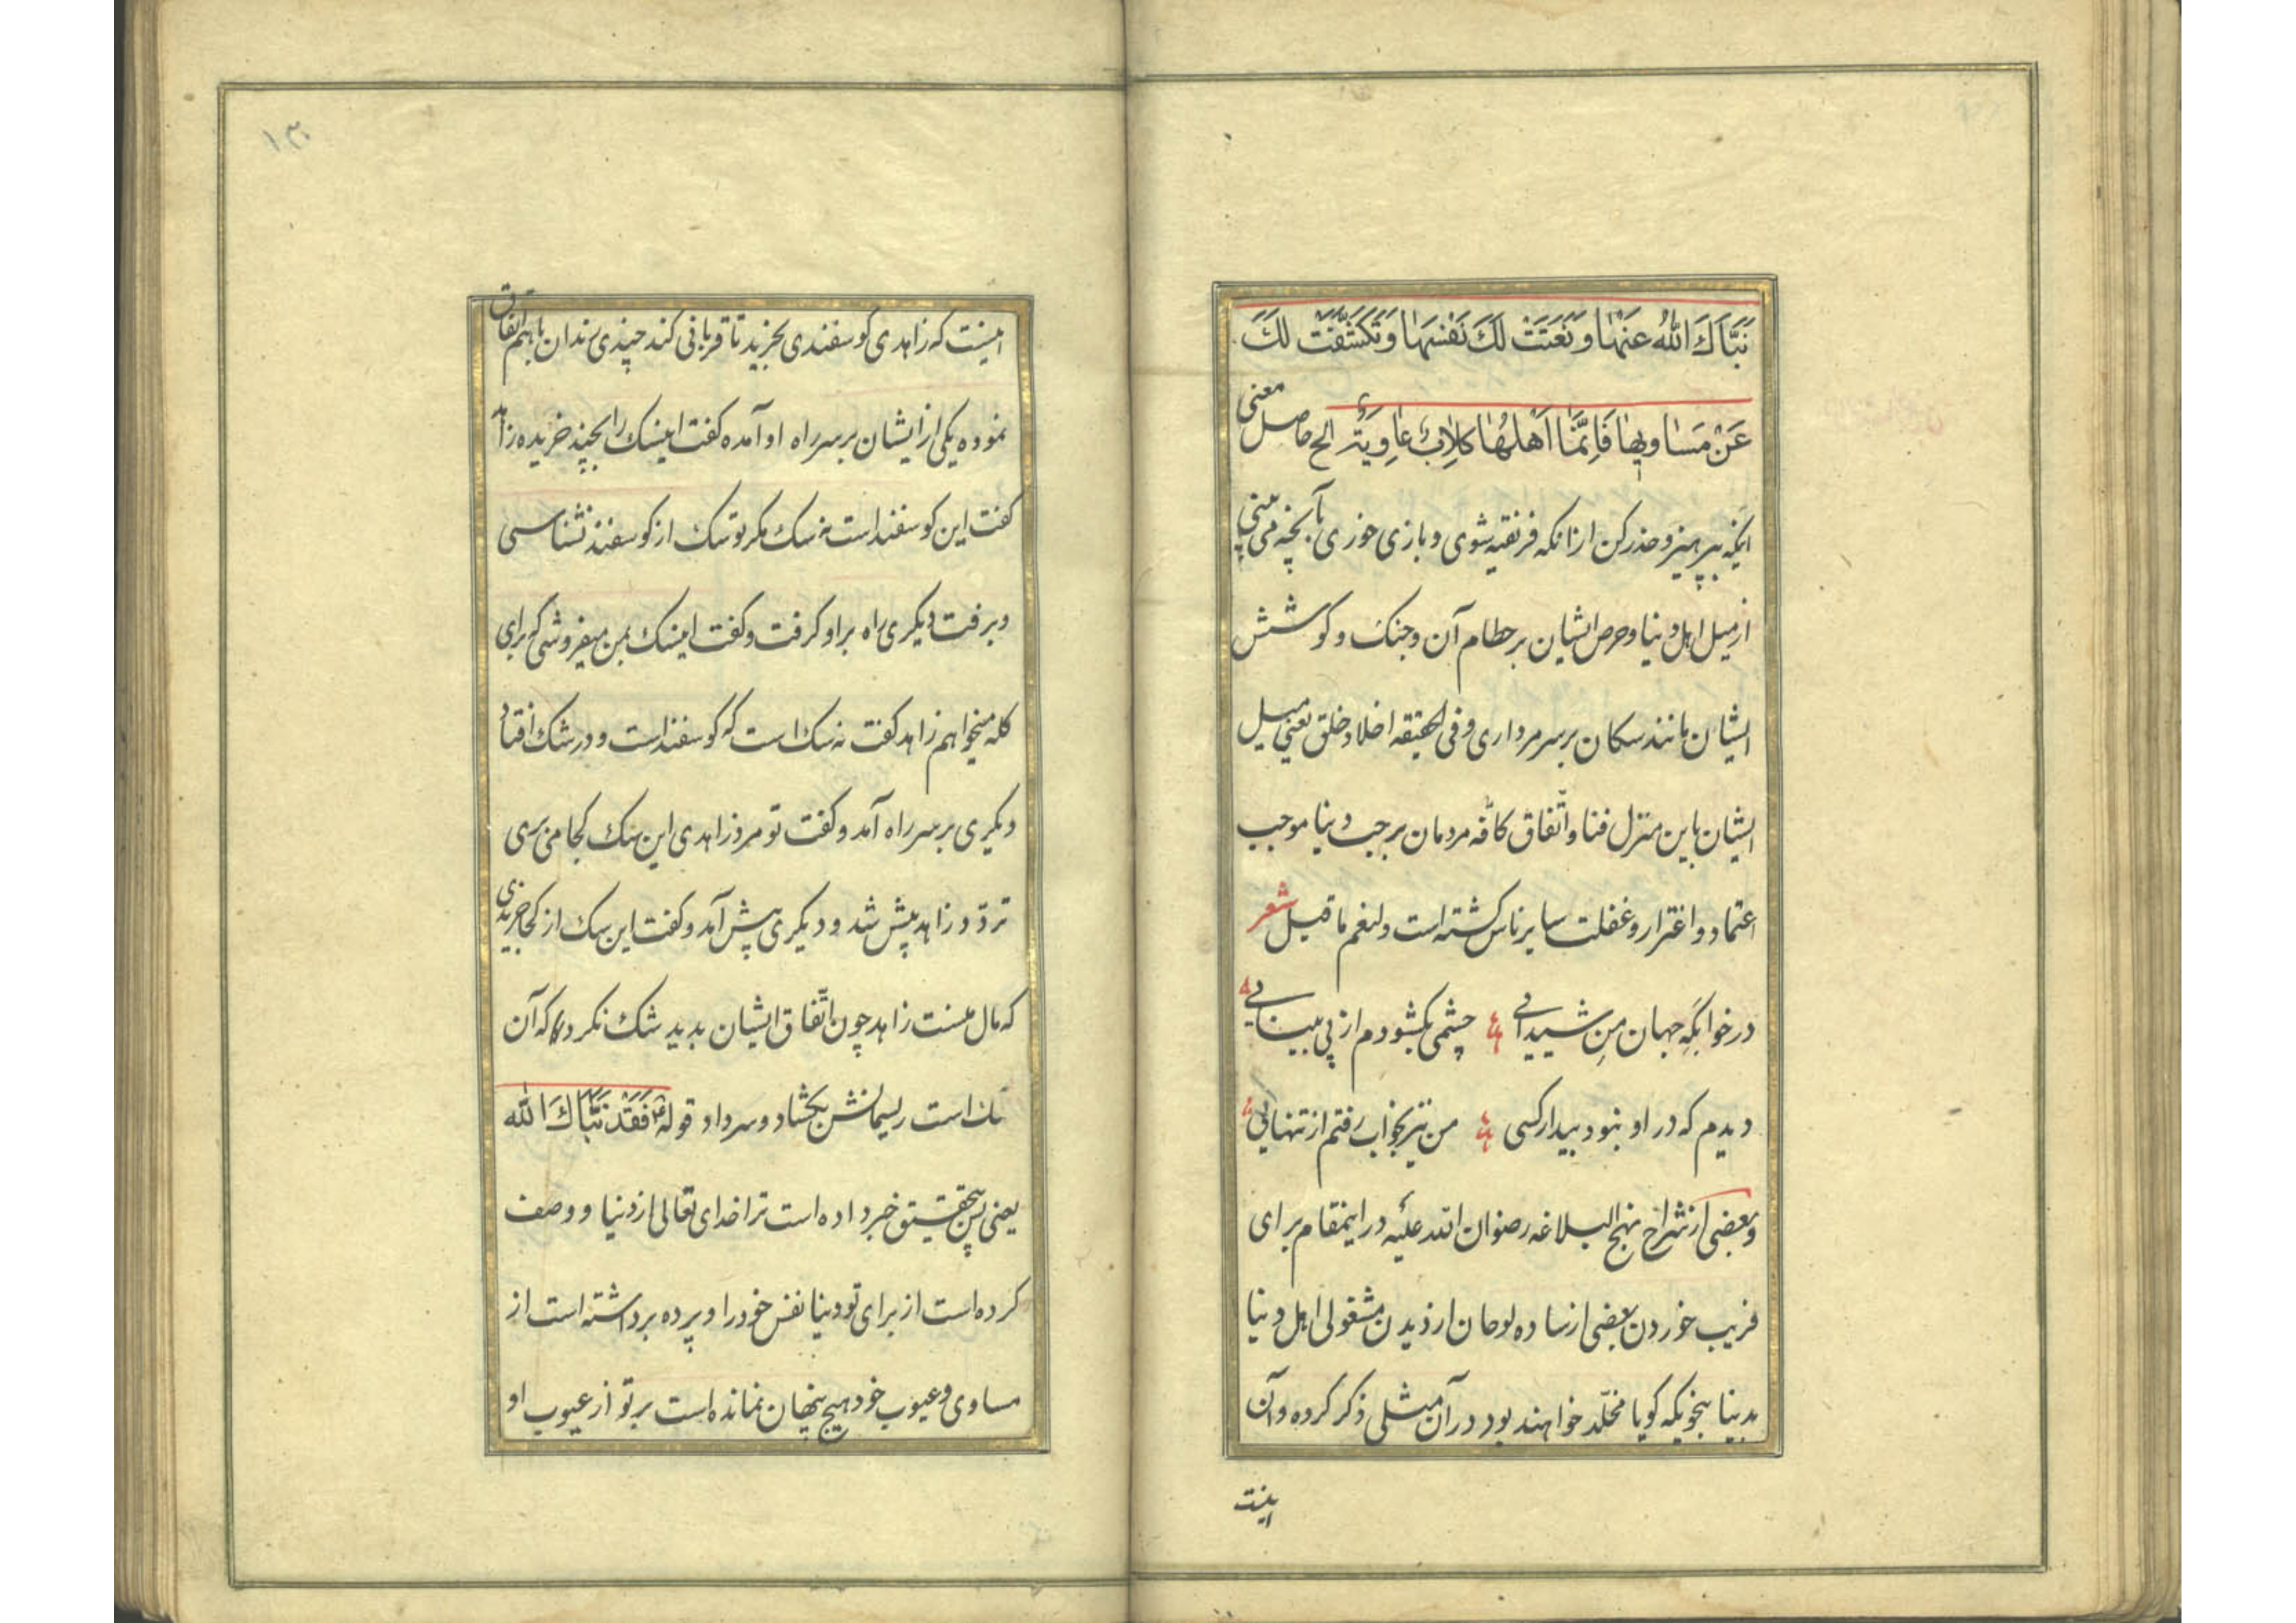 نَبَّاَكَ اللهُ عَنْهٰا وَ نَعَتَتْ لَكَ نَفْسَهٰا وَ تَكَشَّفَتْ لَكَ
عَنْ مَسٰاوِيهٰا فَاِنَّمٰا اَهْلُهٰا كِلابٌ عٰاوِيَةٌ الخ حاصل معنی
اینکه بپرهیز و حذر کن از انکه فریفته شوی و بازی خوری بآنچه می بینی
از میل اهل دنیا و حرص ایشان بر حطام آن و جنک و کوشش
ایشان مانند سکان بر سر مرداری و فی الحقیقه اخلاد خلق یعنی میل
ایشان باین منزل فنا و اتّفاق کافّه مردمان بر حب دنیا موجب
اعتماد و اغترار و غفلت سایر ناس کشته است و لنعم ما قیل شعر
در خوابکه جهان من شیدایی چشمی بکشودم از پی بینایی
دیدم که در او نبود بیدار کسی من نیز بخواب رفتم از تنهایی
و بعضی از شراح نهج البلاغه رضوان الله علیه در اینمقام برای
فریب خوردن بعضی از ساده لوحان از دیدن مشغولی اهل دنیا
بدنیا بنحویکه کویا مخلّد خواهند بود در آن مثلی ذکر کرده و آن
اینست
۱۳۰
اینست که زاهدی کوسفندی بخرید تا قربانی کند چندی رندان باهم اتفاق
نموده یکی از ایشان بر سر راه او آمده کفت این سک را بچند خریده زاهد
کفت این کوسفند است نه سک مکر تو سک از کوسفند نشناسی
و برفت دیکری راه بر او کرفت و کفت این سک بمن میفروشی که برای
کله میخواهم زاهد کفت نه سک است که کوسفند است و در شک افتاد
دیکری بر سر راه آمد و کفت تو مرد زاهدی این سک کجا می بری
تردّد زاهد بیش شد و دیکری پیش آمد و کفت این سک از کجا خریدی
که مال منست زاهد چون اتّفاق ایشان بدید شک نکرد که آن
سک است ریسمانش بکشاد و سر داد قوله ع فَقَدْ نَبَّاَكَ اللهُ
یعنی پس بتحقیق خبر داده است ترا خدای تعالی از دنیا و وصف
کرده است از برای تو دنیا نفس خود را و پرده برداشته است از
مساوی و عیوب خود هیچ پنهان نمانده است بر تو از عیوب او